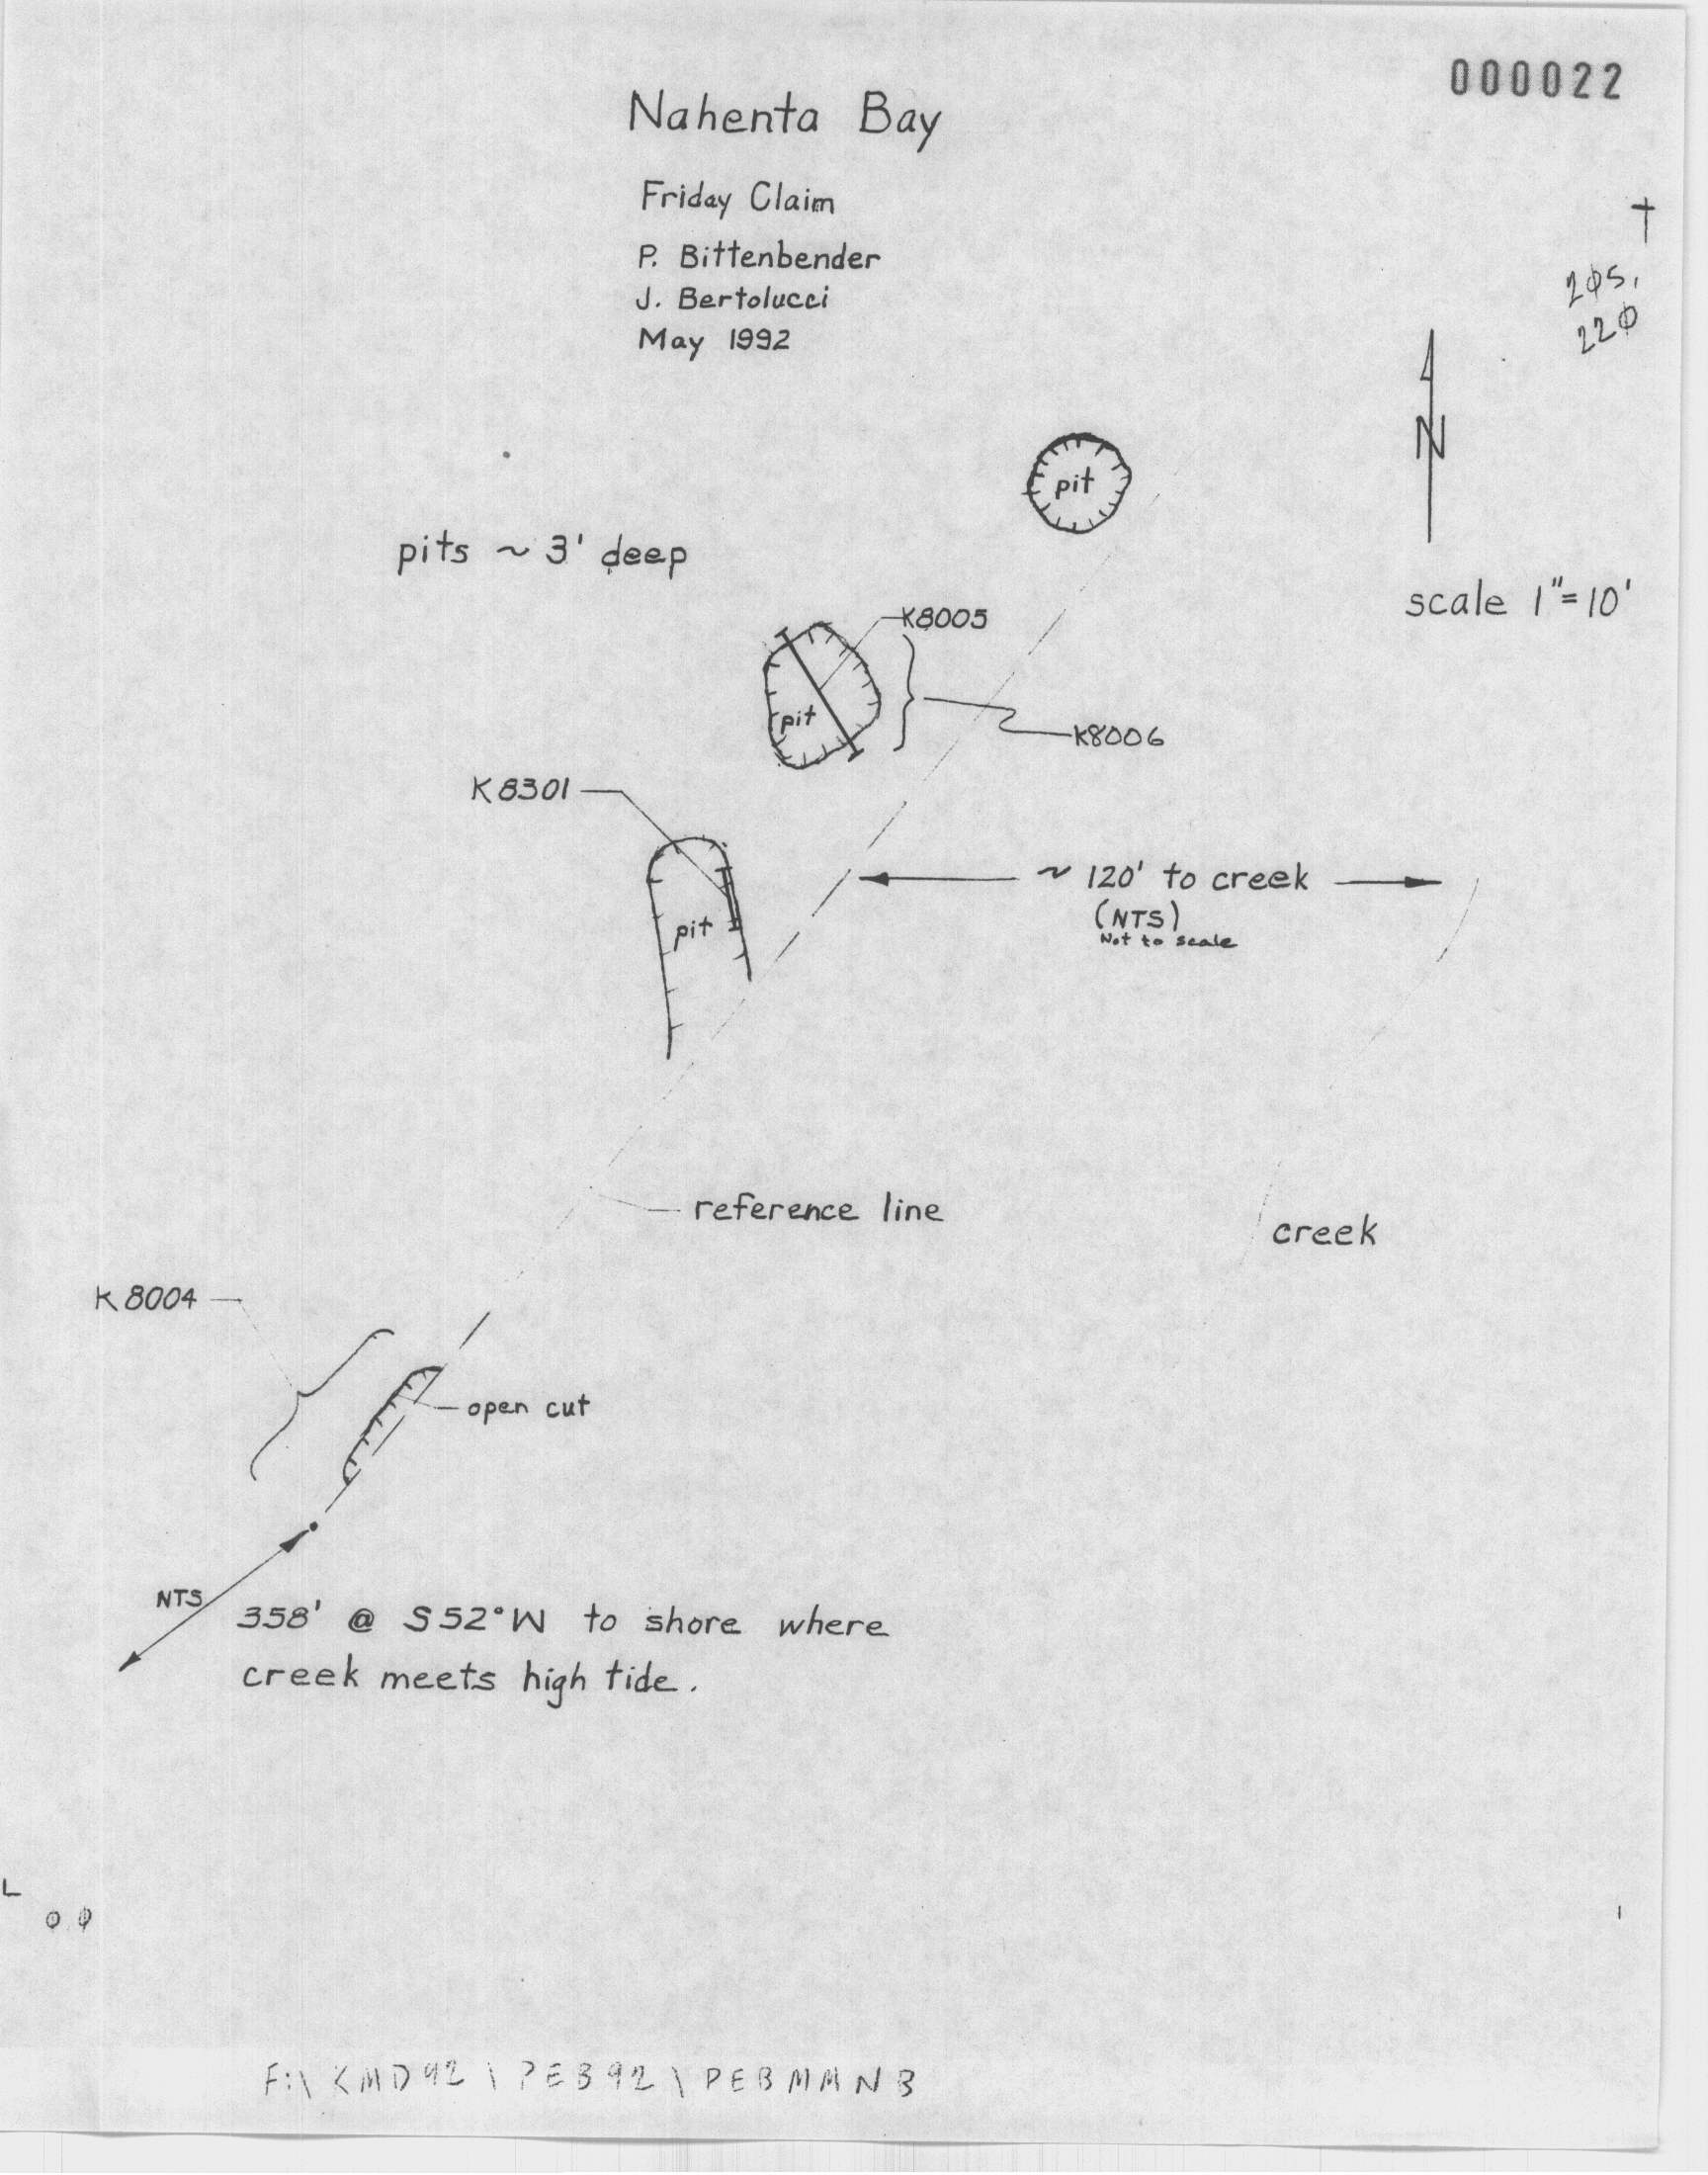 000022
Nahenta Bay
Friday Claim
P. Bittenbender
J. Bertolucci
May 1992
2φ5,
22φ
N
scale 1"=10'
pit
pits ~ 3' deep
K8005
pit
K8006
K8301
~ 120' to creek
(NTS)
Not to scale
pit
reference line
creek
K8004
open cut
NTS
358' @ S52°W to shore where
creek meets high tide.
L
0 φ
F:\KMD92\PEB92\PEBMMNB